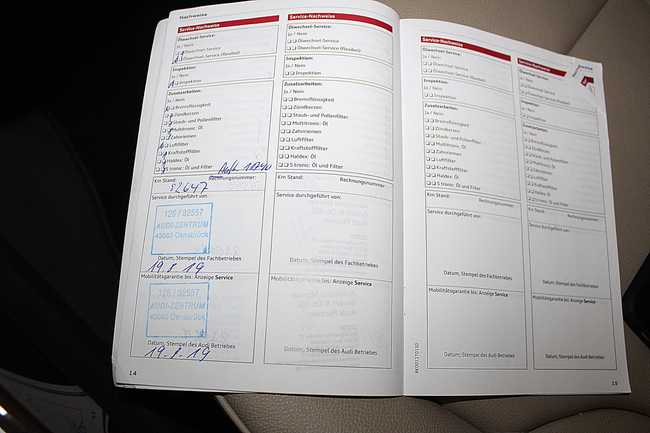 Nachweise
Service-Nachweise
Ölwechsel-Service
Ja / Nein
Ölwechsel-Service
Ölwechsel-Service (flexibel)
Inspektion:
Ja / Nein
Inspektion
Zusatzarbeiten:
Ja / Nein
Bremsflüssigkeit
Zündkerzen
Staub- und Pollenfilter
Multitronic: Öl
Zahnriemen
Luftfilter
Kraftstofffilter
Haldex: Öl
S tronic: Öl und Filter
Km Stand:
Rechnungsnummer:
Service durchgeführt von:
126 / 82557
AUDI-ZENTRUM
Osnabrück
Datum, Stempel des Fachbetriebes
19.8.19
Mobilitätsgarantie bis: Anzeige Service
126 / 82557
AUDI-ZENTRUM
Osnabrück
Datum, Stempel des Audi Betriebes
19.8.19
14
Service-Nachweise
Ölwechsel-Service:
Ja / Nein
Ölwechsel-Service
Ölwechsel-Service (flexibel)
Inspektion:
Ja / Nein
Inspektion
Zusatzarbeiten:
Ja / Nein
Bremsflüssigkeit
Zündkerzen
Staub- und Pollenfilter
Multitronic: Öl
Zahnriemen
Luftfilter
Kraftstofffilter
Haldex: Öl
S tronic: Öl und Filter
Km Stand:
Rechnungsnummer:
Service durchgeführt von:
Datum, Stempel des Fachbetriebes
Mobilitätsgarantie bis: Anzeige Service
Datum, Stempel des Audi Betriebes
Service-Nachweise
Ölwechsel-Service:
Ja / Nein
Ölwechsel-Service
Ölwechsel-Service (flexibel)
Inspektion:
Ja / Nein
Inspektion
Zusatzarbeiten:
Ja / Nein
Bremsflüssigkeit
Zündkerzen
Staub- und Pollenfilter
Multitronic: Öl
Zahnriemen
Luftfilter
Kraftstofffilter
Haldex: Öl
S tronic: Öl und Filter
Km Stand:
Rechnungsnummer:
Service durchgeführt von:
Datum, Stempel des Fachbetriebes
Mobilitätsgarantie bis: Anzeige Service
Datum, Stempel des Audi Betriebes
Service-Nachweise
Ölwechsel-Service:
Ja / Nein
Ölwechsel-Service
Ölwechsel-Service (flexibel)
Inspektion:
Ja / Nein
Inspektion
Zusatzarbeiten:
Ja / Nein
Bremsflüssigkeit
Zündkerzen
Staub- und Pollenfilter
Multitronic: Öl
Zahnriemen
Luftfilter
Kraftstofffilter
Haldex: Öl
S tronic: Öl und Filter
Km Stand:
Rechnungsnummer:
Service durchgeführt von:
Datum, Stempel des Fachbetriebes
Mobilitätsgarantie bis: Anzeige Service
Datum, Stempel des Audi Betriebes
15